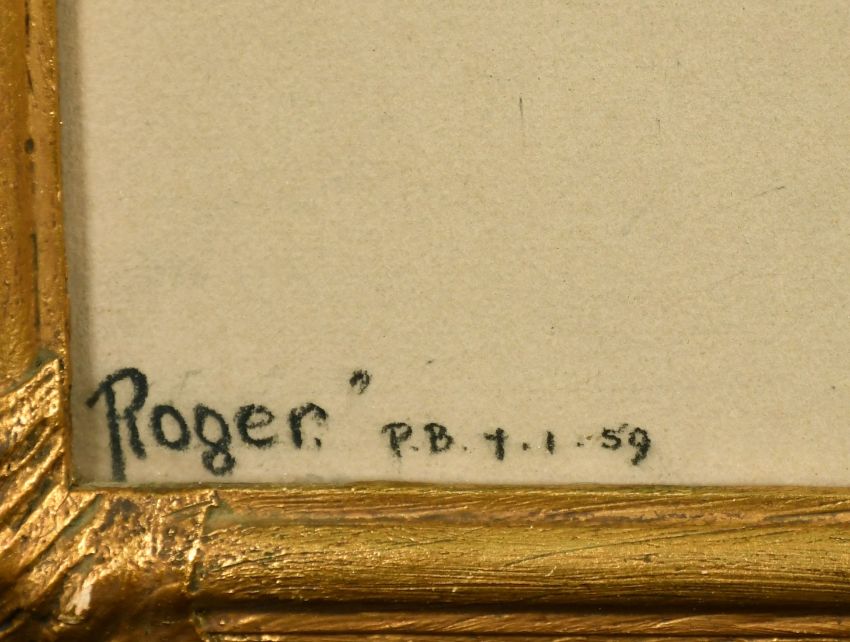 Roger." P.B. 7.1.59